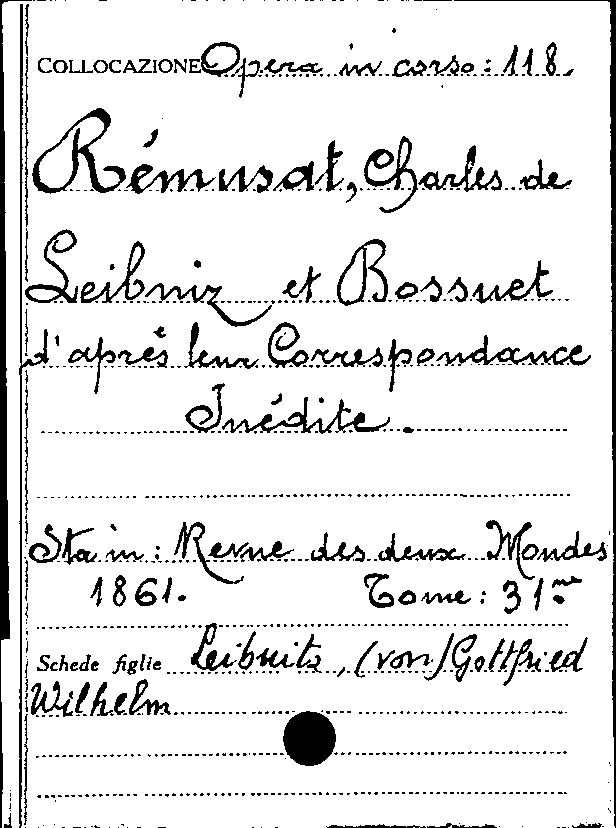 COLLOCAZIONE Opera in corso: 118.
Rémusat, Charles de
Leibniz et Bossuet
d'aprés leur Correspondance
Inédite.
Sta in: Revue des deux Mondes
1861. Tome: 31me
Schede figlie Leibnitz, (von) Gottfried
Wilhelm